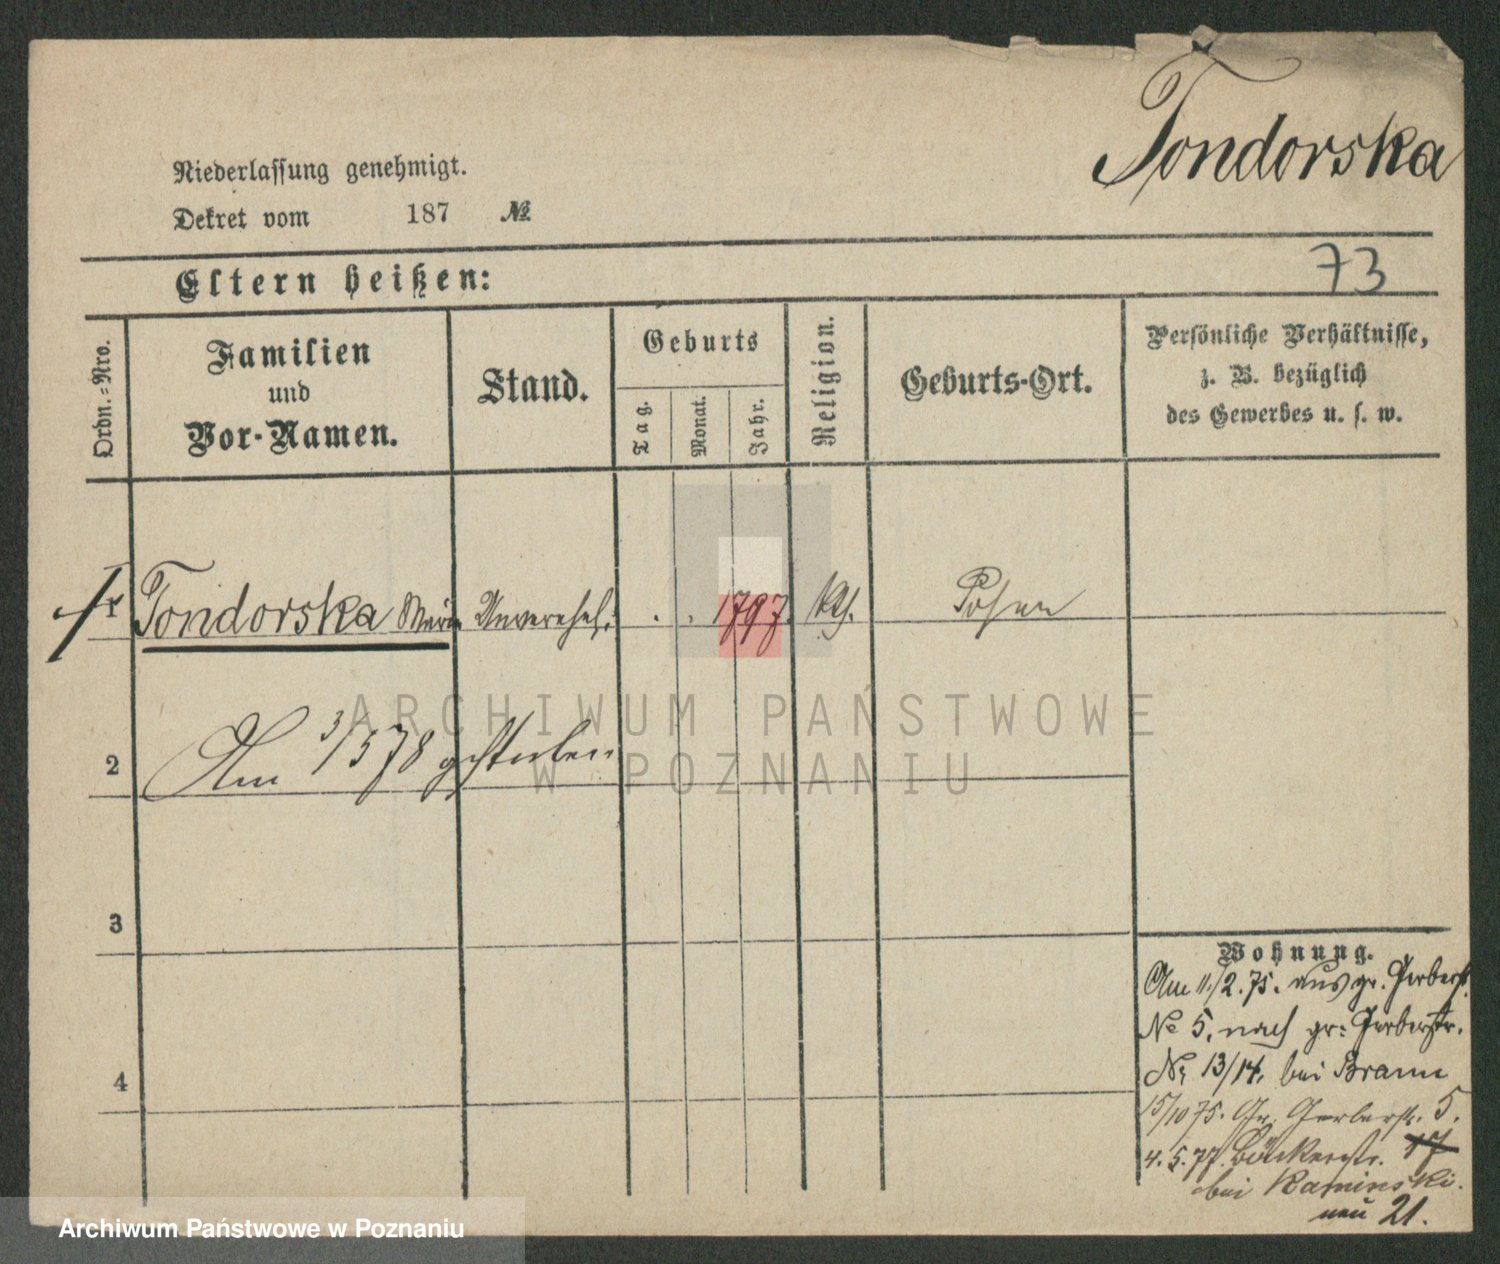 Tondorska
Niederlassung genehmigt.
Dekret vom 187 №
73
Eltern heißen:
Ordn.-Nro.
Familien
und
Vor-Namen.
Stand.
Geburts
Tag.
Monat.
Jahr.
Religion.
Geburts-Ort.
Persönliche Verhältnisse,
z. B. bezüglich
des Gewerbes u. s. w.
1 Tondorska Marie Unverehel. . . 1797. kth. Posen
2 Am 3/5 78 gestorben
3
4
ARCHIWUM PAŃSTWOWE
W POZNANIU
Wohnung.
Am 11./2.75. aus gr. Gerberst.
No 5. nach gr: Gerberstr.
No 13/14. bei Braun
15/10 75. Gr. Gerberstr. 5.
4.5.77. Bäckerstr. 17
bei Kaminski.
neu 21.
Archiwum Państwowe w Poznaniu